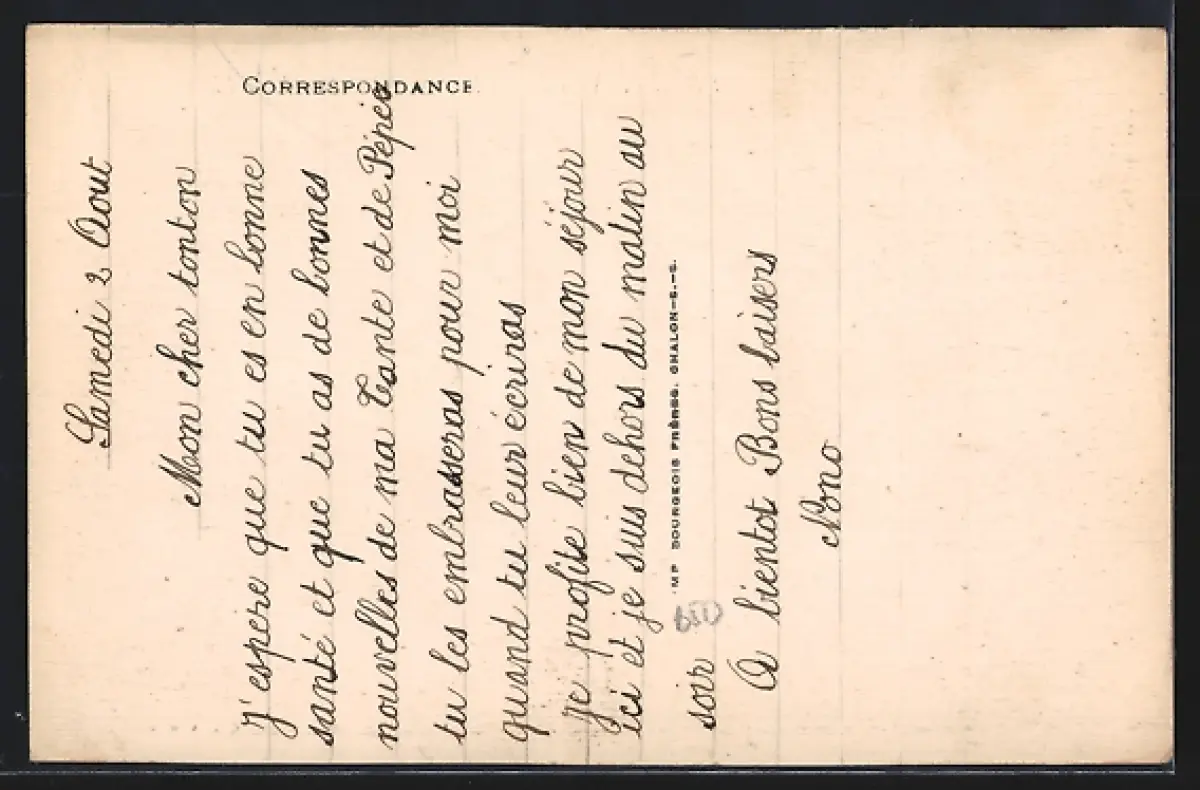 CORRESPONDANCE
Samedi 2 Aout
Mon cher tonton
j'espere que tu es en bonne
santé et que tu as de bonnes
nouvelles de ma Tante et de Pépée
tu les embrasseras pour moi
quand tu leur écriras
je profite bien de mon séjour
ici et je suis dehors du matin au
soir
A bientot Bons baisers
Nono
IMP BOURGEOIS FRÈRES, CHALON-S.-S.